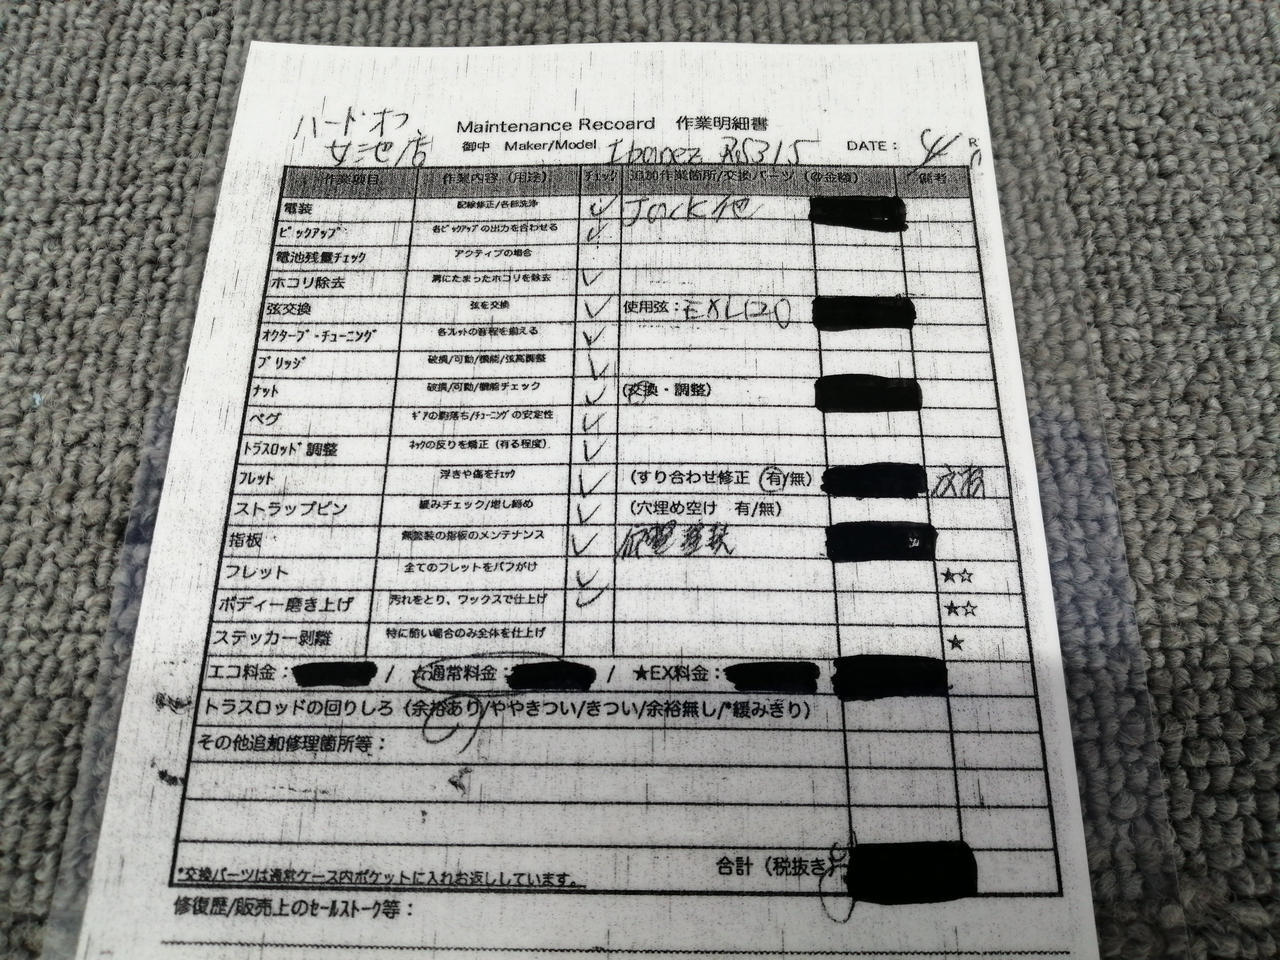 ハードオフ
女池店
Maintenance Recoard 作業明細書
御中 Maker/Model Ibanez RS315 DATE: 4/
作業項目 作業内容 (用途) チェック 追加作業箇所/交換パーツ (@金額) 備考
電装 配線修正/各部洗浄 Jack他
ピックアップ 各ピックアップの出力を合わせる
電池残量チェック アクティブの場合
ホコリ除去 溝にたまったホコリを除去
弦交換 弦を交換 使用弦:EXL120
オクターブ・チューニング 各フレットの音程を揃える
ブリッジ 破損/可動/機能/弦高調整
ナット 破損/可動/機能チェック (交換・調整)
ペグ ギアの動落ち/チューニングの安定性
トラスロッド調整 ネックの反りを矯正 (有る程度)
フレット 浮きや傷をチェック (すり合わせ修正 有/無)
ストラップピン 緩みチェック/増し締め (穴埋め空け 有/無)
指板 無塗装の指板のメンテナンス
フレット 全てのフレットをバフがけ ★☆
ボディー磨き上げ 汚れをとり、ワックスで仕上げ ★☆
ステッカー剥離 特に酷い場合のみ全体を仕上げ ★
エコ料金: / ☆通常料金: / ★EX料金:
トラスロッドの回りしろ (余裕あり/ややきつい/きつい/余裕無し/*緩みぎり)
その他追加修理箇所等:
合計 (税抜き)
*交換パーツは通常ケース内ポケットに入れお返ししています。
修復歴/販売上のセールストーク等: